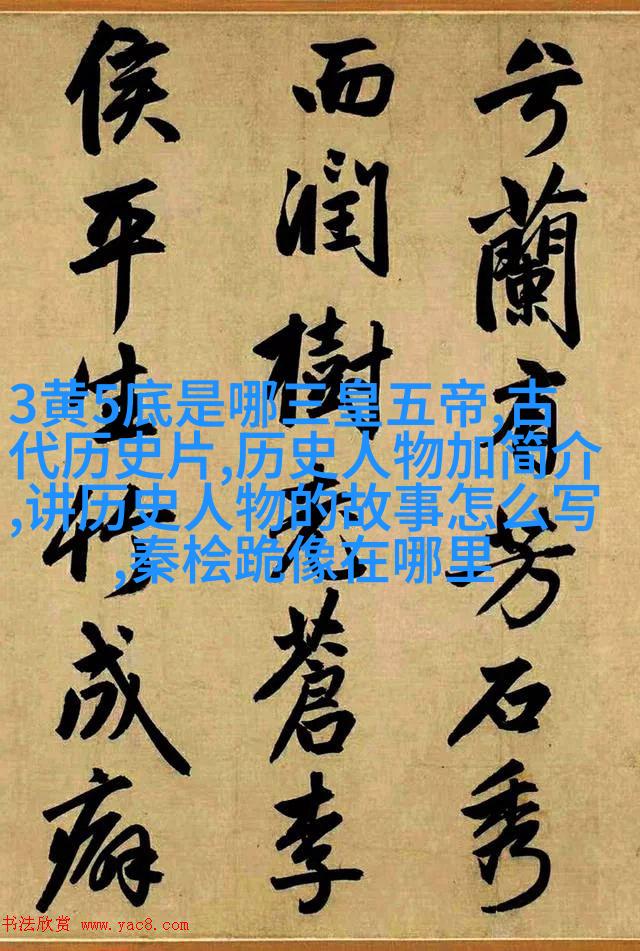 兮蘭有芳石秀
而潤樹老蒼李
侯平生竹成癖
3黄5底是哪三皇五帝,古
代历史片,历史人物加简介
,讲历史人物的故事怎么写
,秦桧跪像在哪里
书法欣赏 www.yac8.com